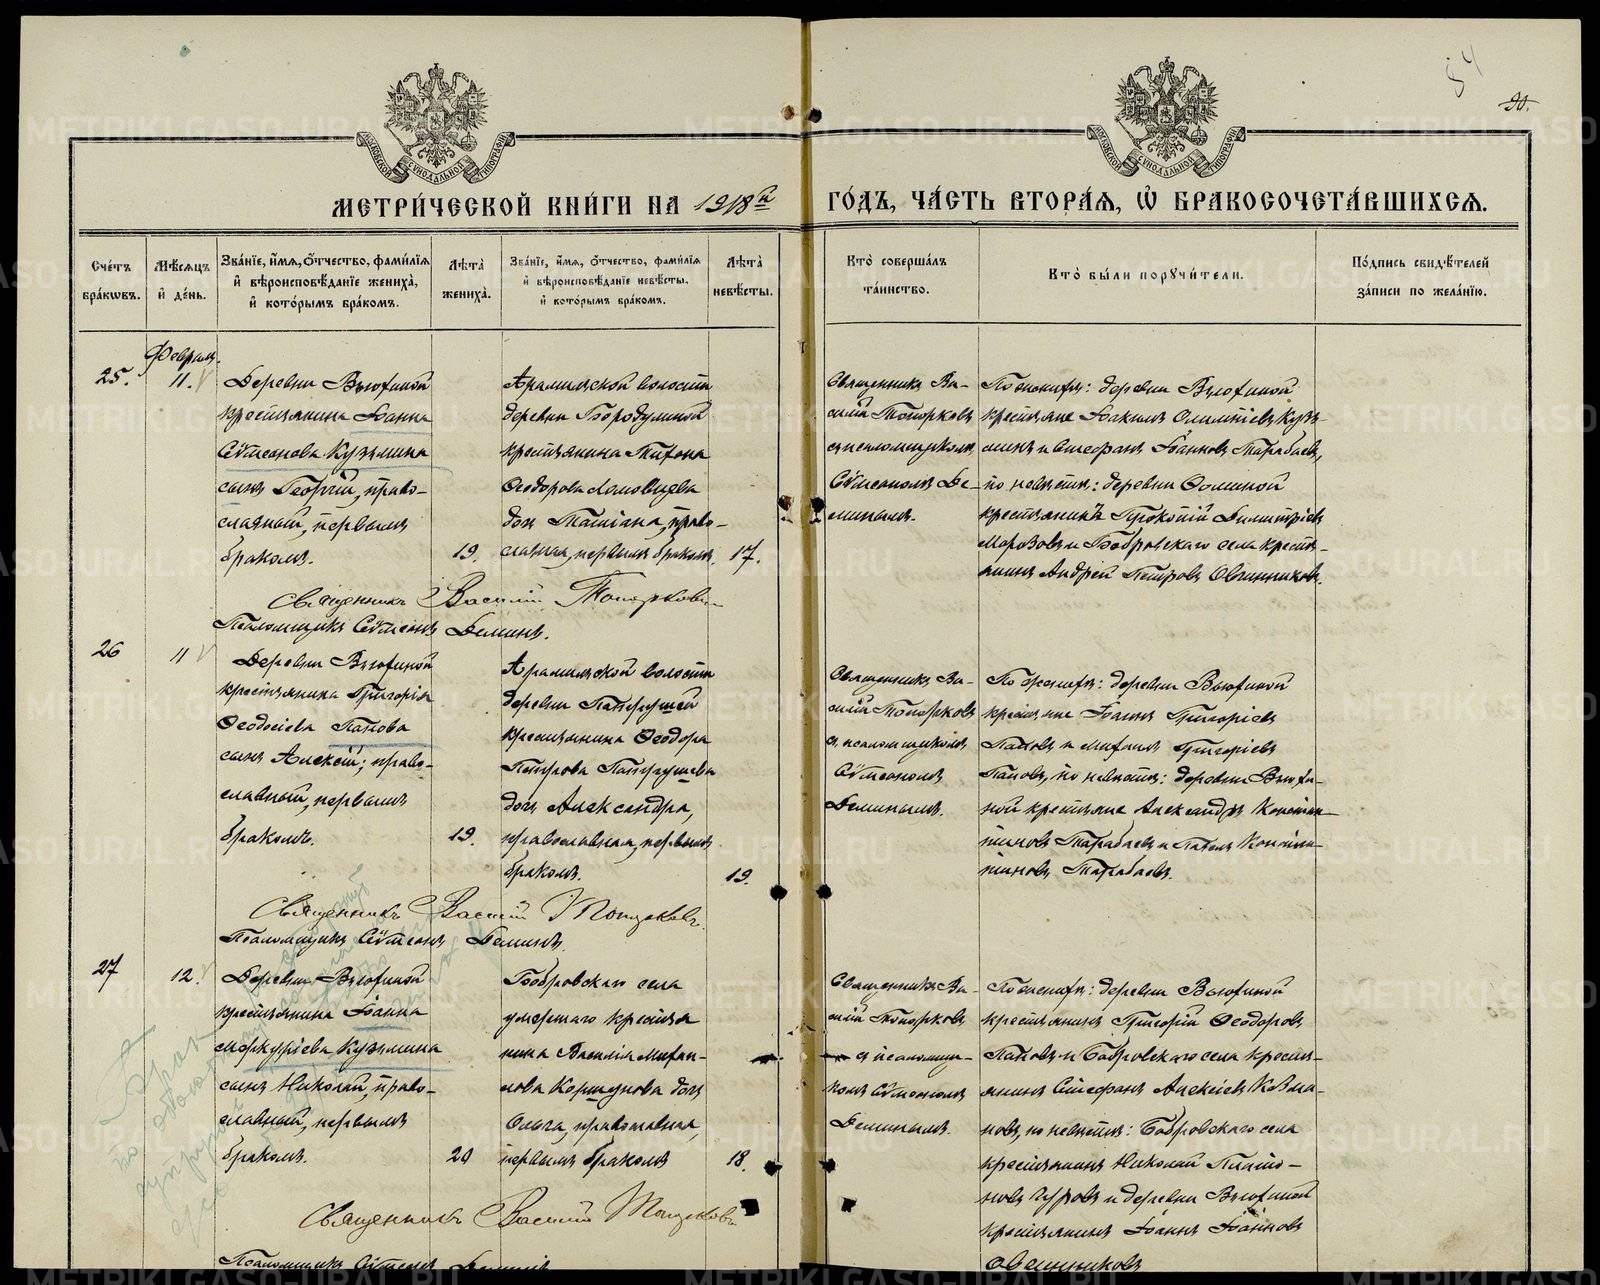 54
90.
МЕТРИ́ЧЕСКОЙ КНИ́ГИ НА 1918й ГО́ДЪ, ЧА́СТЬ ВТОРА́Я, Ѽ БРАКОСОЧЕТА́ВШИХСЯ.
Сче́тъ бра́ковъ.
Мѣ́сяцъ и́ де́нь.
Зва́нїе, и́мя, о́тчество, фами́лїя и́ вѣроисповѣ́данїе жениха̀, и́ кото́рымъ бра́комъ.
Лѣ́та жениха̀.
Зва́нїе, и́мя, о́тчество, фами́лїя и́ вѣроисповѣ́данїе невѣ́сты, и́ кото́рымъ бра́комъ.
Лѣ́та невѣ́сты.
Кто̀ соверша́лъ та́инство.
Кто̀ бы́ли порꙋчи́тели.
По́дпись свидѣ́телей за́писи по жела́нїю.
Февраль.
25.
11.
Деревни Вьюхиной
крестьянина Іоанна
Сѵмеонова Кузьмина
сынъ Георгій, право-
славный, первымъ
бракомъ.
19.
Арамильской волости
деревни Бородулиной
крестьянина Тихона
Ѳеодорова
дочь Татіана, право-
славная, первымъ бракомъ.
17.
Священникъ Ва-
силій Топорковъ
съ псаломщикомъ
Сѵмеономъ Де-
минымъ.
По женихѣ: деревни Вьюхиной
крестьяне Іоакимъ Олимпіевъ Кузь-
минъ и Стефанъ Іоанновъ Тарабаевъ,
по невѣстѣ: деревни Фоминой
крестьянинъ Прокопій Димитріевъ
Морозовъ и Бобровскаго села кресть-
янинъ Андрей Петровъ Овчинниковъ.
Священникъ Василій Топорковъ
Псаломщикъ Сѵмеонъ Деминъ.
26
11
Деревни Вьюхиной
крестьянина Григорія
Ѳеодосіева Папова
сынъ Алексій, право-
славный, первымъ
бракомъ.
19.
Арамильской волости
деревни Патрушей
крестьянина Ѳеодора
Петрова Патрушева
дочь Александра,
православная, первымъ
бракомъ.
19.
Священникъ Ва-
силій Топорковъ
съ псаломщикомъ
Сѵмеономъ
Деминымъ.
По женихѣ: деревни Вьюхиной
крестьяне Іоаннъ Григоріевъ
Паповъ и Михаилъ Григоріевъ
Паповъ, по невѣстѣ: деревни Вьюхи-
ной крестьяне Александръ Констан-
тиновъ Тарабаевъ и Павелъ Констан-
тиновъ Тарабаевъ.
Священникъ Василій Топорковъ.
Псаломщикъ Сѵмеонъ Деминъ.
27
12.
Деревни Вьюхиной
крестьянина Іоанна
Меркуріева Кузьмина
сынъ Николай, право-
славный, первымъ
бракомъ.
20
Бобровскаго села
умершаго крестья
нина Василія Михаи-
лова Коршунова дочь
Ольга, православная,
первымъ бракомъ
18.
Священникъ Ва-
силій Топорковъ
съ псаломщи-
комъ Сѵмеономъ
Деминымъ.
По женихѣ: деревни Вьюхиной
крестьянинъ Григорій Ѳеодоровъ
Паповъ и Бобровскаго села кресть-
янинъ Стефанъ Алексіевъ Козма-
новъ, по невѣстѣ: Бобровскаго села
крестьянинъ Николай Плато-
новъ Чуровъ и деревни Вьюхиной
крестьянинъ Іоаннъ Іоанновъ
Овчинниковъ
Священникъ Василій Топорковъ
Псаломщикъ Сѵмеонъ Деминъ
METRIKI.GASO-URAL.RU